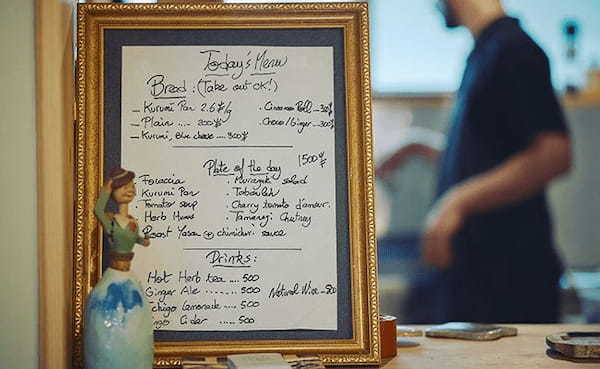 Today's Menu
Bread: (Take out OK!)
— Kurumi Pan 2.6¥/g
. Cinnamon Roll — 3
— Plain .... 200¥
. Choco/Ginger — 300¥
— Kurumi, Blue cheese .... 300¥
Plate of the day 1500¥
. Focaccia
. salad
. Kurumi Pan
. Tabouleh
. Tomato soup
. Cherry tomato d'amour.
. Herb
. Chutney
Roast ⊕ chimichuri sauce
Drinks:
Hot Herb tea .... 500
Ginger Ale ....... 500
Natural Wine — 500
chigo Lemonade .... 500
Cider ..... 500